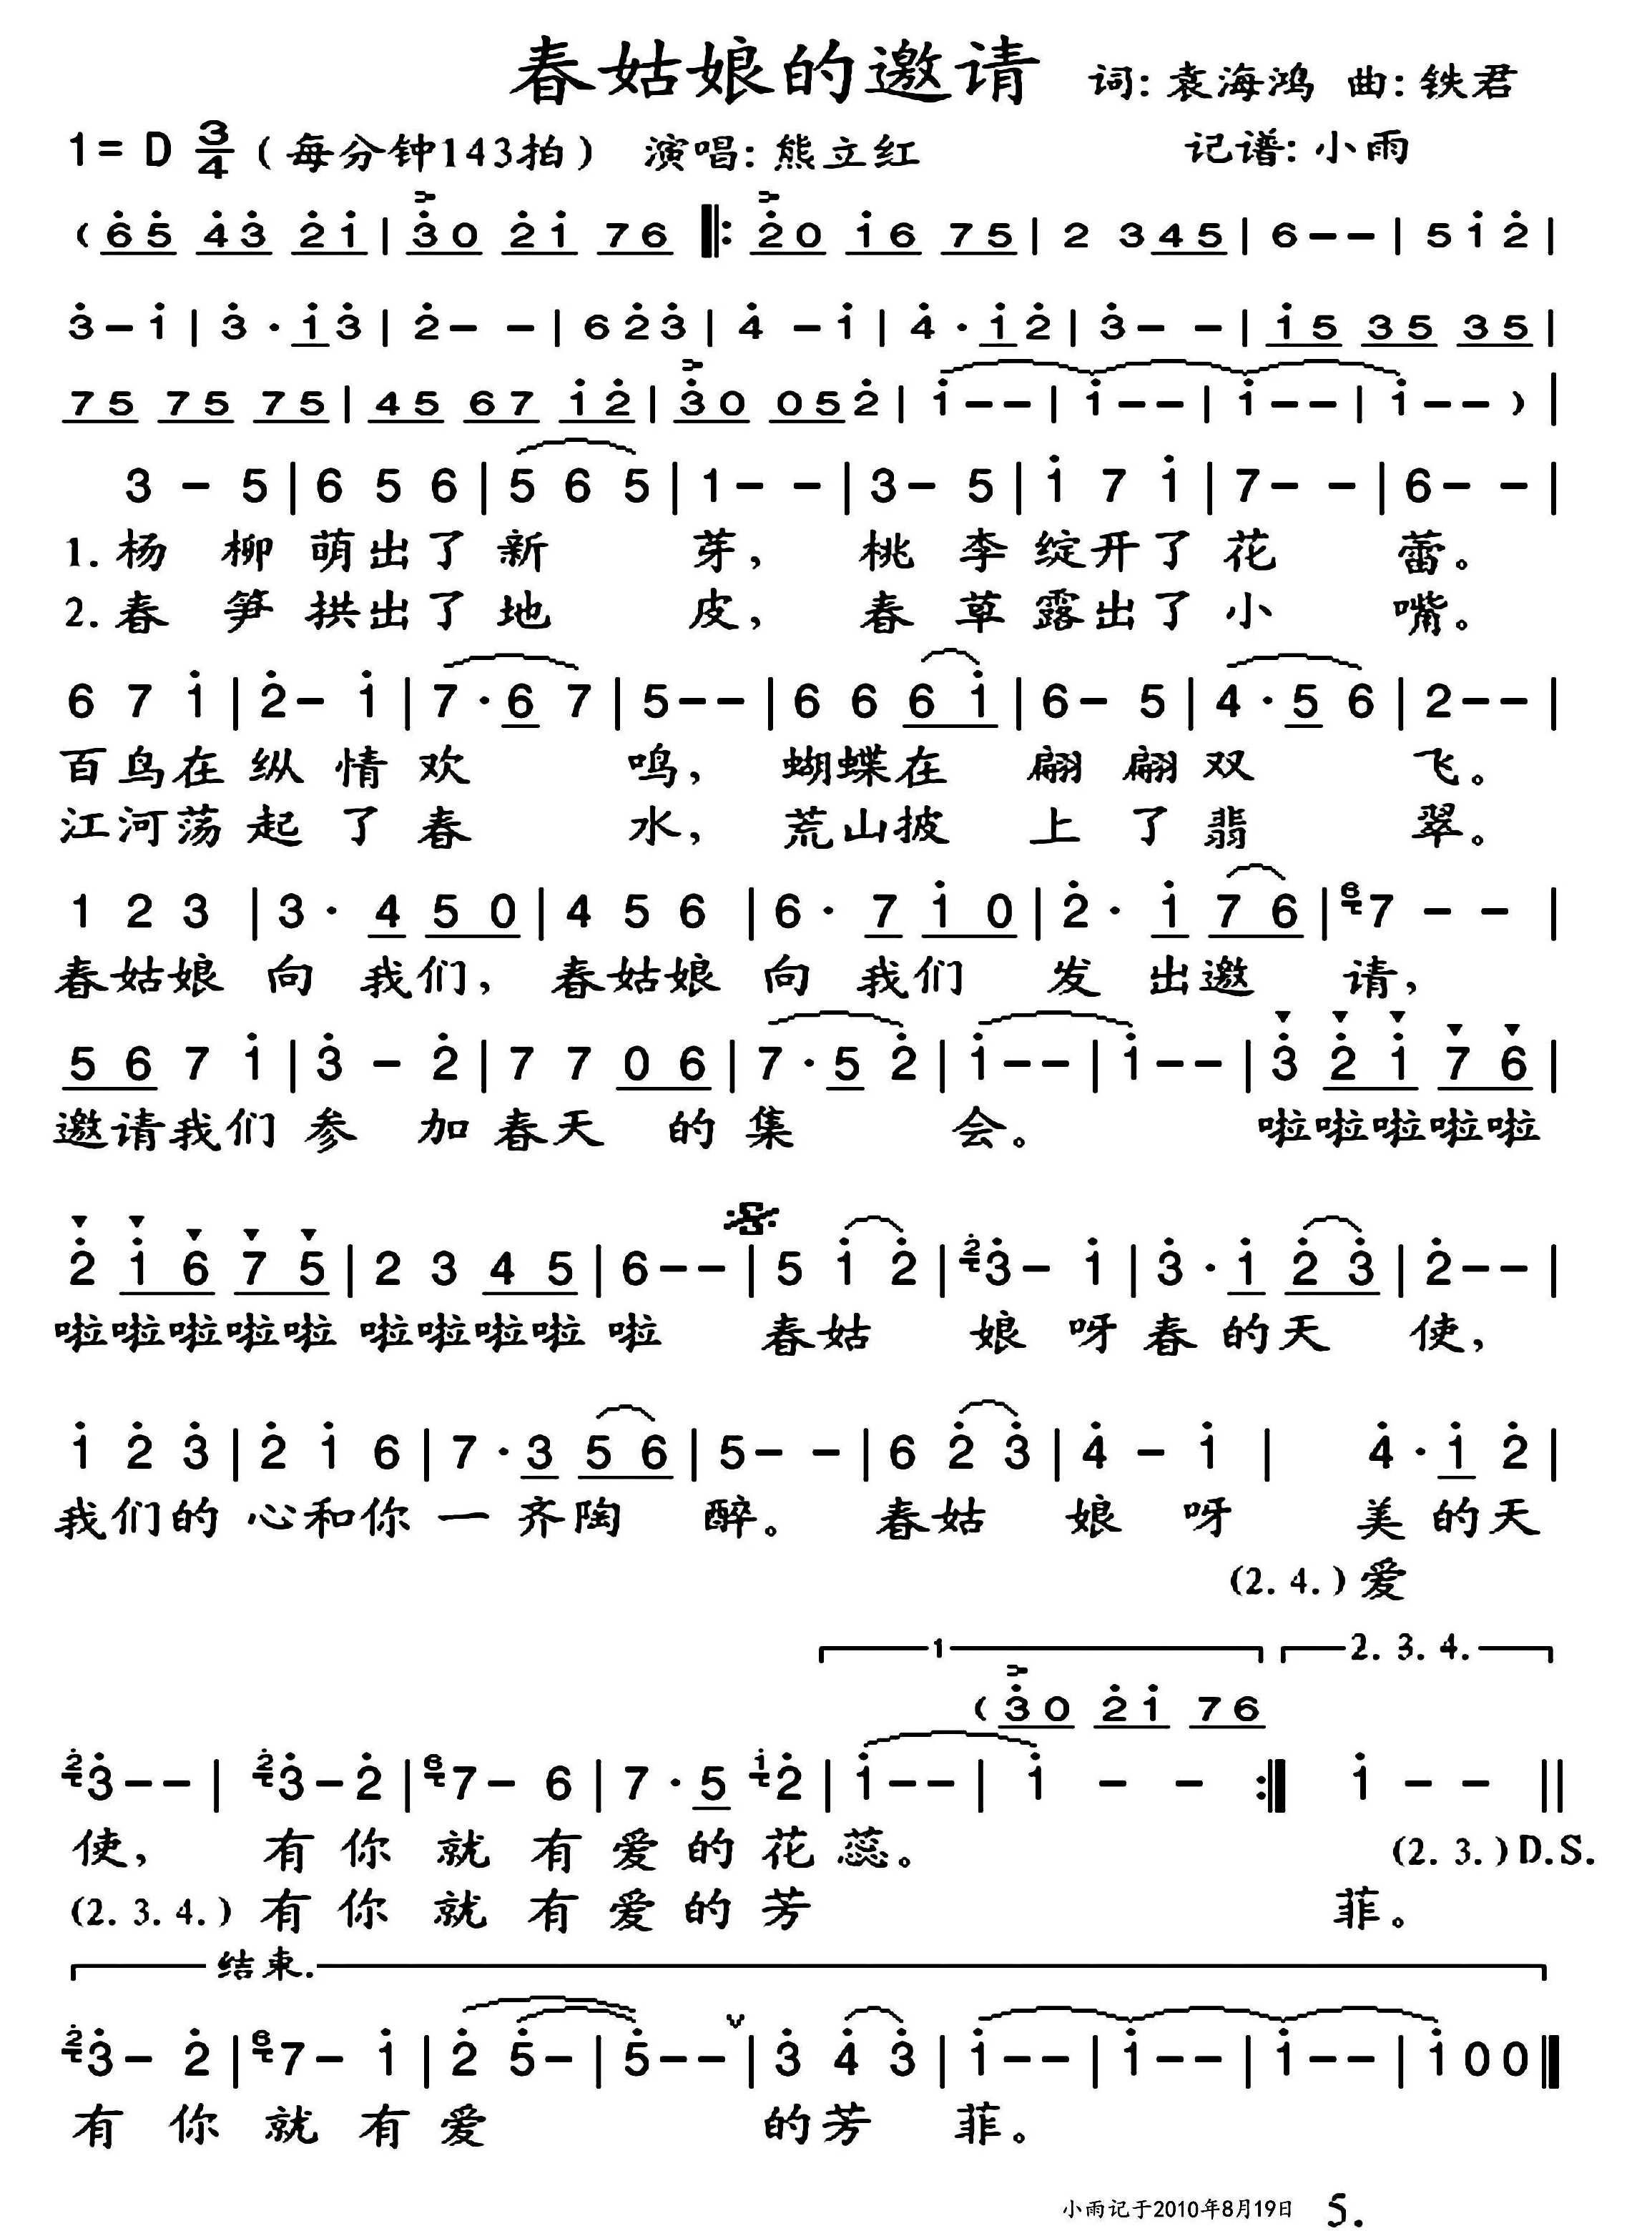 春姑娘的邀请 词: 袁海鸿 曲: 铁君
1= D 3/4 (每分钟143拍) 演唱: 熊立红 记谱: 小雨
( 6̇5̇ 4̇3̇ 2̇1̇ | 3̇0 2̇1̇ 76 ‖: 2̇0 1̇6 75 | 2 345 | 6-- | 51̇2̇ |
3̇-1̇ | 3̇·1̇3̇ | 2̇-- | 62̇3̇ | 4̇-1̇ | 4̇·1̇2̇ | 3̇-- | 1̇5 35 35 |
75 75 75 | 45 67 1̇2̇ | 3̇0 052̇ | 1̇-- | 1̇-- | 1̇-- | 1̇-- ) |
3 - 5 | 6 5 6 | 5 6 5 | 1-- | 3- 5 | 1̇ 7 1̇ | 7-- | 6-- |
1. 杨 柳 萌出了新 芽, 桃 李 绽开了花 蕾。
2. 春 笋 拱出了地 皮, 春 草 露出了小 嘴。
6 7 1̇ | 2̇- 1̇ | 7·6 7 | 5-- | 6 6 6 1̇ | 6- 5 | 4·5 6 | 2-- |
百鸟在纵 情 欢 鸣, 蝴蝶在 翩 翩 双 飞。
江河荡起 了 春 水, 荒山披 上 了 翡 翠。
1 2 3 | 3· 4 5 0 | 4 5 6 | 6· 7 1̇ 0 | 2̇· 1̇ 7 6 | 6 7 - - |
春姑娘 向 我们, 春姑娘 向 我们 发 出邀 请,
5 6 7 1̇ | 3̇ - 2̇ | 7 7 0 6 | 7·5 2̇ | 1̇-- | 1̇-- | 3̇ 2̇ 1̇ 7 6 |
邀请我们 参 加 春天 的 集 会。 啦啦啦啦啦
2̇ 1̇ 6 7 5 | 2 3 4 5 | 6-- | 5 1̇ 2̇ | 2̇ 3̇- 1̇ | 3̇·1̇ 2̇ 3̇ | 2̇-- |
啦啦啦啦啦 啦啦啦啦 啦 春姑 娘 呀 春 的天 使,
1̇ 2̇ 3̇ | 2̇ 1̇ 6 | 7·3 5 6 | 5-- | 6 2̇ 3̇ | 4̇ - 1̇ | 4̇·1̇ 2̇ |
我们的 心和你 一 齐陶 醉。 春姑 娘 呀 美 的天
(2. 4.) 爱
1 2. 3. 4.
( 3̇0 2̇1̇ 76
2̇ 3̇-- | 2̇ 3̇-2̇ | 6 7- 6 | 7·5 1̇ 2̇ | 1̇-- | 1̇ - - :‖ 1̇ - - ‖
使, 有 你 就 有 爱 的 花 蕊。 (2. 3.) D.S.
(2. 3. 4.) 有 你 就 有 爱 的 芳 菲。
结束.
2̇ 3̇- 2̇ | 6 7- 1̇ | 2̇ 5̇- | 5̇-- | 3̇ 4̇ 3̇ | 1̇-- | 1̇-- | 1̇-- | 1̇00 ‖
有 你 就 有 爱 的芳 菲。
小雨记于2010年8月19日 5.